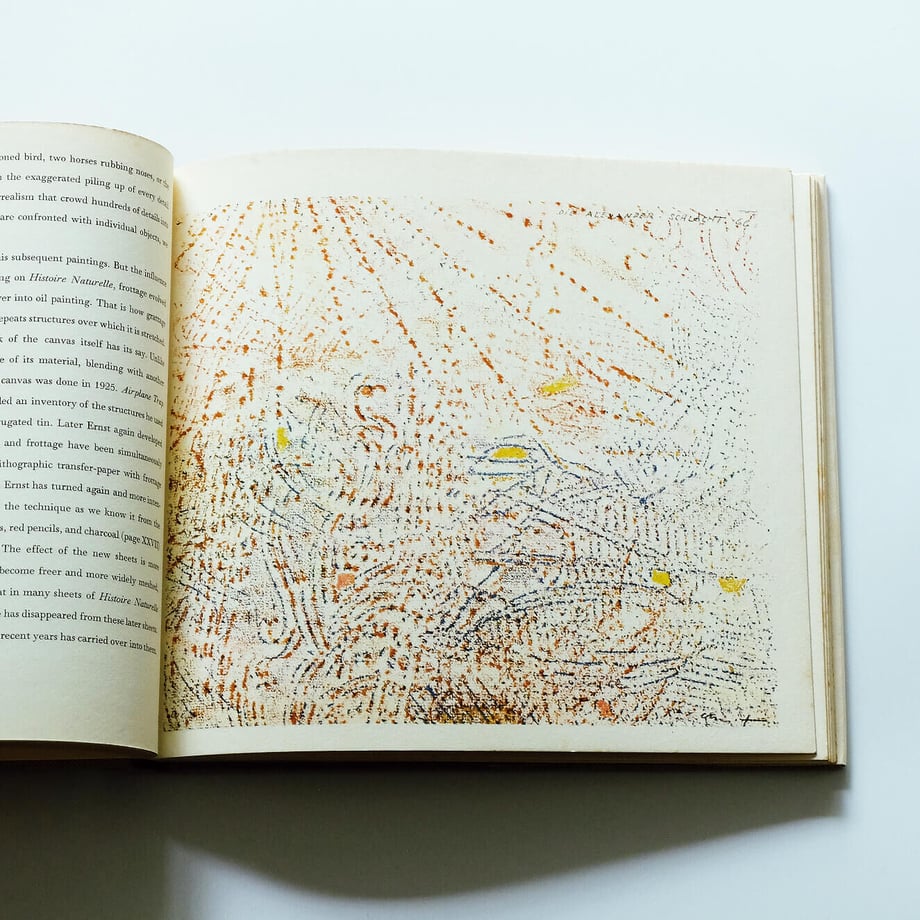 oned bird, two horses rubbing noses, or the
the exaggerated piling up of every detail
realism that crowd hundreds of details into
are confronted with individual objects, we
is subsequent paintings. But the influence
ng on Histoire Naturelle, frottage evolved
er into oil painting. That is how grattage
epeats structures over which it is stretched.
k of the canvas itself has its say. Unlike
e of its material, blending with another
canvas was done in 1925. Airplane Trap
led an inventory of the structures he used
rugated tin. Later Ernst again developed
and frottage have been simultaneously
ithographic transfer-paper with frottage
Ernst has turned again and more inten-
the technique as we know it from the
s, red pencils, and charcoal (page XXVII)
The effect of the new sheets is more
become freer and more widely meshed,
at in many sheets of Histoire Naturelle
has disappeared from these later sheets
recent years has carried over into them,
DIE ALEXANDER SCHLACHT.